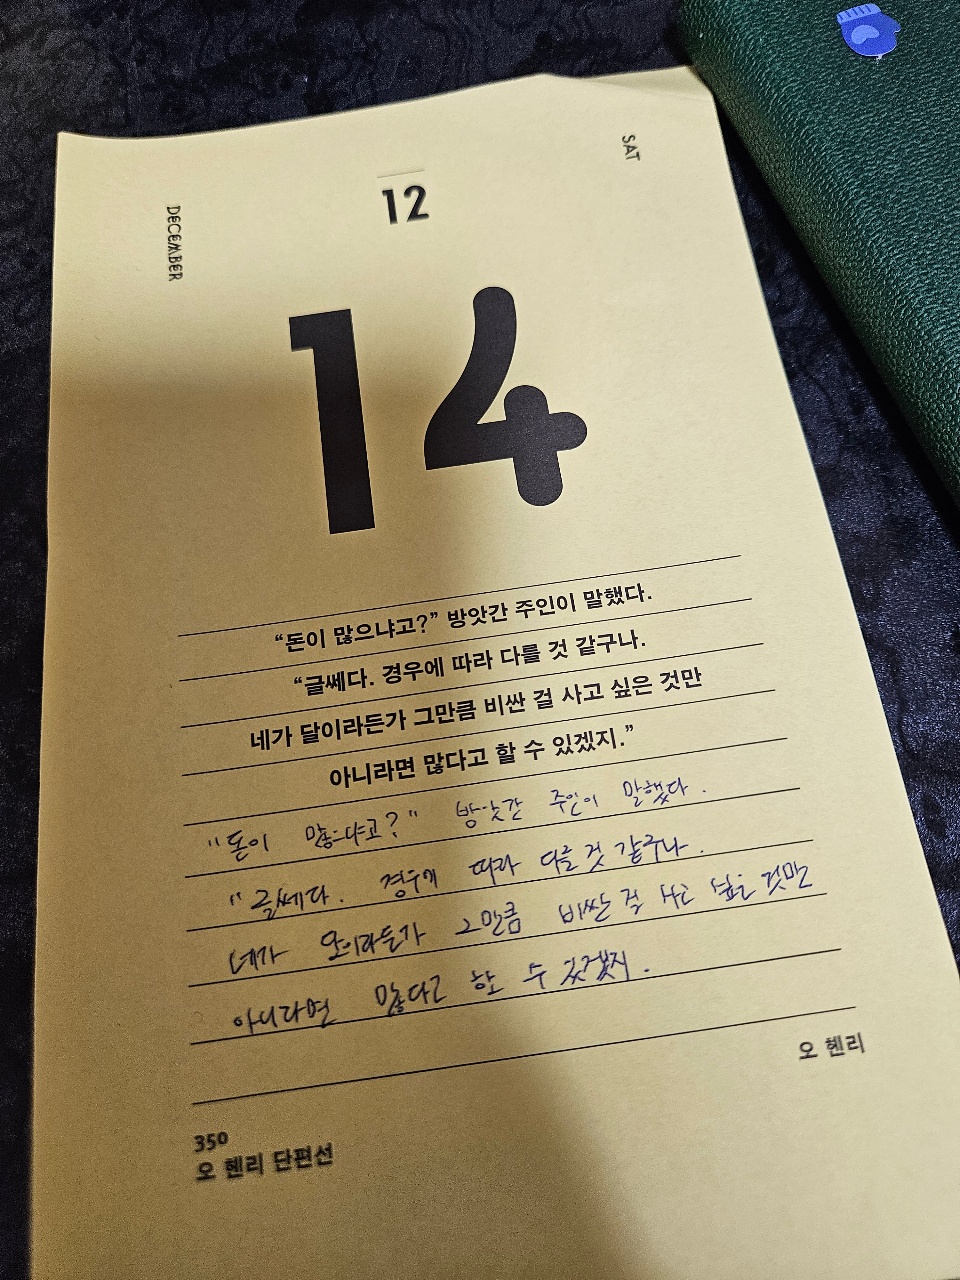 SAT
12
DECEMBER
14
“돈이 많으냐고?” 방앗간 주인이 말했다.
“글쎄다. 경우에 따라 다를 것 같구나.
네가 달이라든가 그만큼 비싼 걸 사고 싶은 것만
아니라면 많다고 할 수 있겠지.”
"돈이 많으냐고?" 방앗간 주인이 말했다.
"글쎄다. 경우에 따라 다를 것 같구나.
네가 달이라든가 그만큼 비싼 걸 사고 싶은 것만
아니라면 많다고 할 수 있겠지.
오 헨리
350
오 헨리 단편선